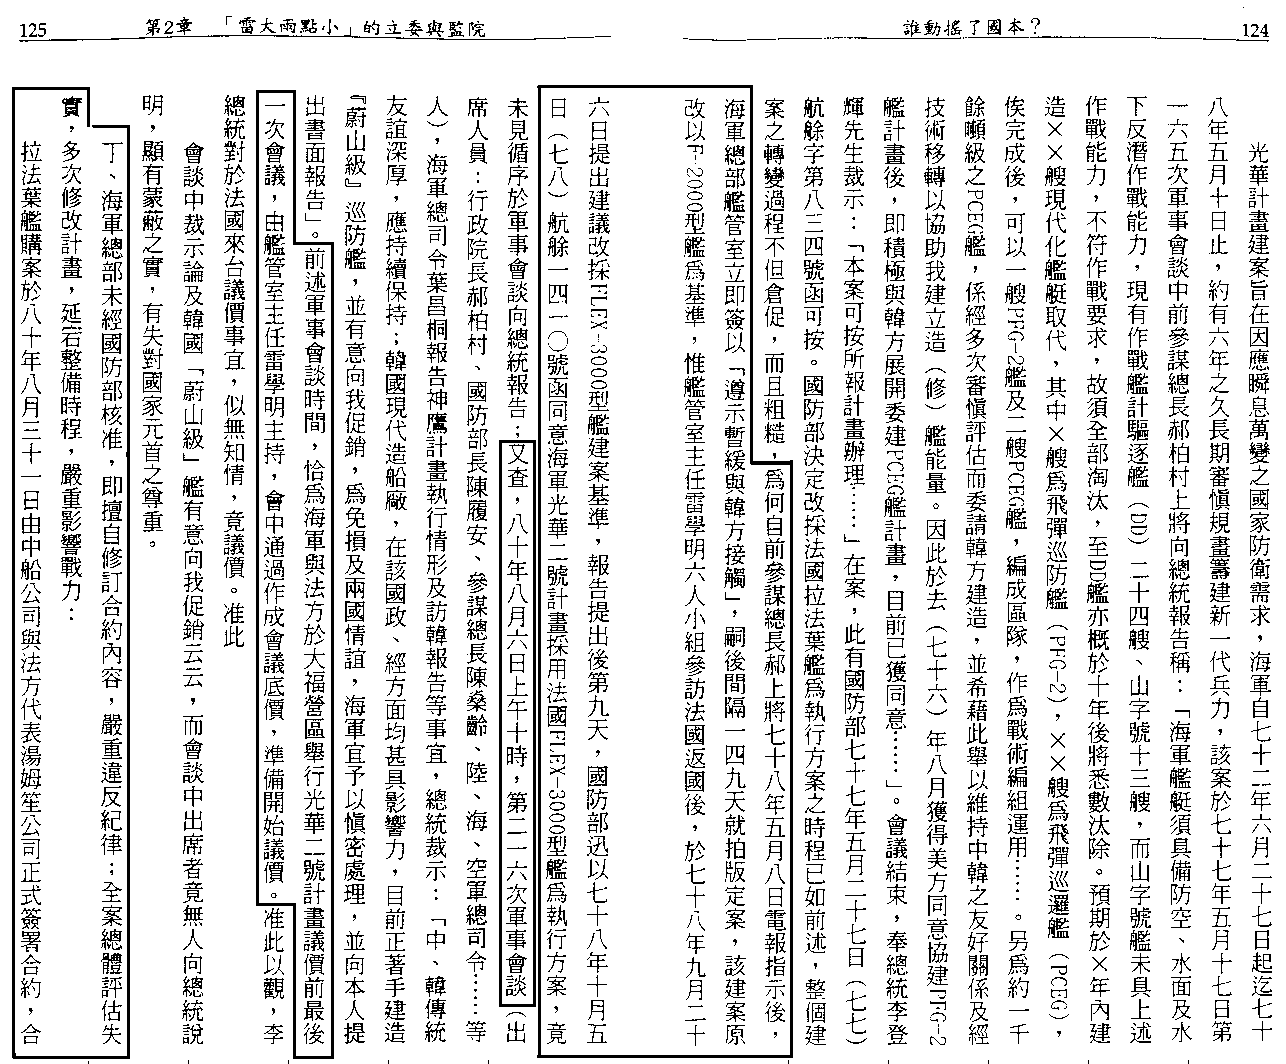 誰動搖了國本？ 124
光華計畫建案旨在因應瞬息萬變之國家防衛需求，海軍自七十二年六月二十七日起迄七十
八年五月十日止，約有六年之久長期審慎規畫籌建新一代兵力，該案於七十七年五月十七日第
一六五次軍事會談中前參謀總長郝柏村上將向總統報告稱：「海軍艦艇須具備防空、水面及水
下反潛作戰能力，現有作戰艦計驅逐艦（DD）二十四艘、山字號十三艘，而山字號艦未具上述
作戰能力，不符作戰要求，故須全部淘汰，至DD艦亦概於十年後將悉數汰除。預期於×年內建
造××艘現代化艦艇取代，其中×艘為飛彈巡防艦（PFG-2），××艘為飛彈巡邏艦（PCEG），
俟完成後，可以一艘PFG-2艦及二艘PCEG艦，編成區隊，作為戰術編組運用……。另為約一千
餘噸級之PCEG艦，係經多次審慎評估而委請韓方建造，並希藉此舉以維持中韓之友好關係及經
技術移轉以協助我建立造（修）艦能量。因此於去（七十六）年八月獲得美方同意協建PFG-2
艦計畫後，即積極與韓方展開委建PCEG艦計畫，目前已獲同意……」。會議結束，奉總統李登
輝先生裁示：「本案可按所報計畫辦理……」在案，此有國防部七十七年五月二十七日（七七）
航艅字第八三四號函可按。國防部決定改採法國拉法葉艦為執行方案之時程已如前述，整個建
案之轉變過程不但倉促，而且粗糙，為何自前參謀總長郝上將七十八年五月八日電報指示後，
海軍總部艦管室立即簽以「遵示暫緩與韓方接觸」，嗣後間隔一四九天就拍版定案，該建案原
改以F-2000型艦為基準，惟艦管室主任雷學明六人小組參訪法國返國後，於七十八年九月二十
第2章 「雷大雨點小」的立委與監院 125
六日提出建議改採FLEX-3000型艦建案基準，報告提出後第九天，國防部迅以七十八年十月五
日（七八）航艅一四一〇號函同意海軍光華二號計畫採用法國FLEX-3000型艦為執行方案，竟
未見循序於軍事會談向總統報告；又查，八十年八月六日上午十時，第二一六次軍事會談（出
席人員：行政院長郝柏村、國防部長陳履安、參謀總長陳燊齡、陸、海、空軍總司令……等
人），海軍總司令葉昌桐報告神鷹計畫執行情形及訪韓報告等事宜，總統裁示：「中、韓傳統
友誼深厚，應持續保持；韓國現代造船廠，在該國政、經方面均甚具影響力，目前正著手建造
『蔚山級』巡防艦，並有意向我促銷，為免損及兩國情誼，海軍宜予以慎密處理，並向本人提
出書面報告」。前述軍事會談時間，恰為海軍與法方於大福營區舉行光華二號計畫議價前最後
一次會議，由艦管室主任雷學明主持，會中通過作成會議底價，準備開始議價。准此以觀，李
總統對於法國來台議價事宜，似無知情，竟議價。准此
會談中裁示論及韓國「蔚山級」艦有意向我促銷云云，而會談中出席者竟無人向總統說
明，顯有蒙蔽之實，有失對國家元首之尊重。
丁、海軍總部未經國防部核准，即擅自修訂合約內容，嚴重違反紀律；全案總體評估失
實，多次修改計畫，延宕整備時程，嚴重影響戰力：
拉法葉艦購案於八十年八月三十一日由中船公司與法方代表湯姆笙公司正式簽署合約，合